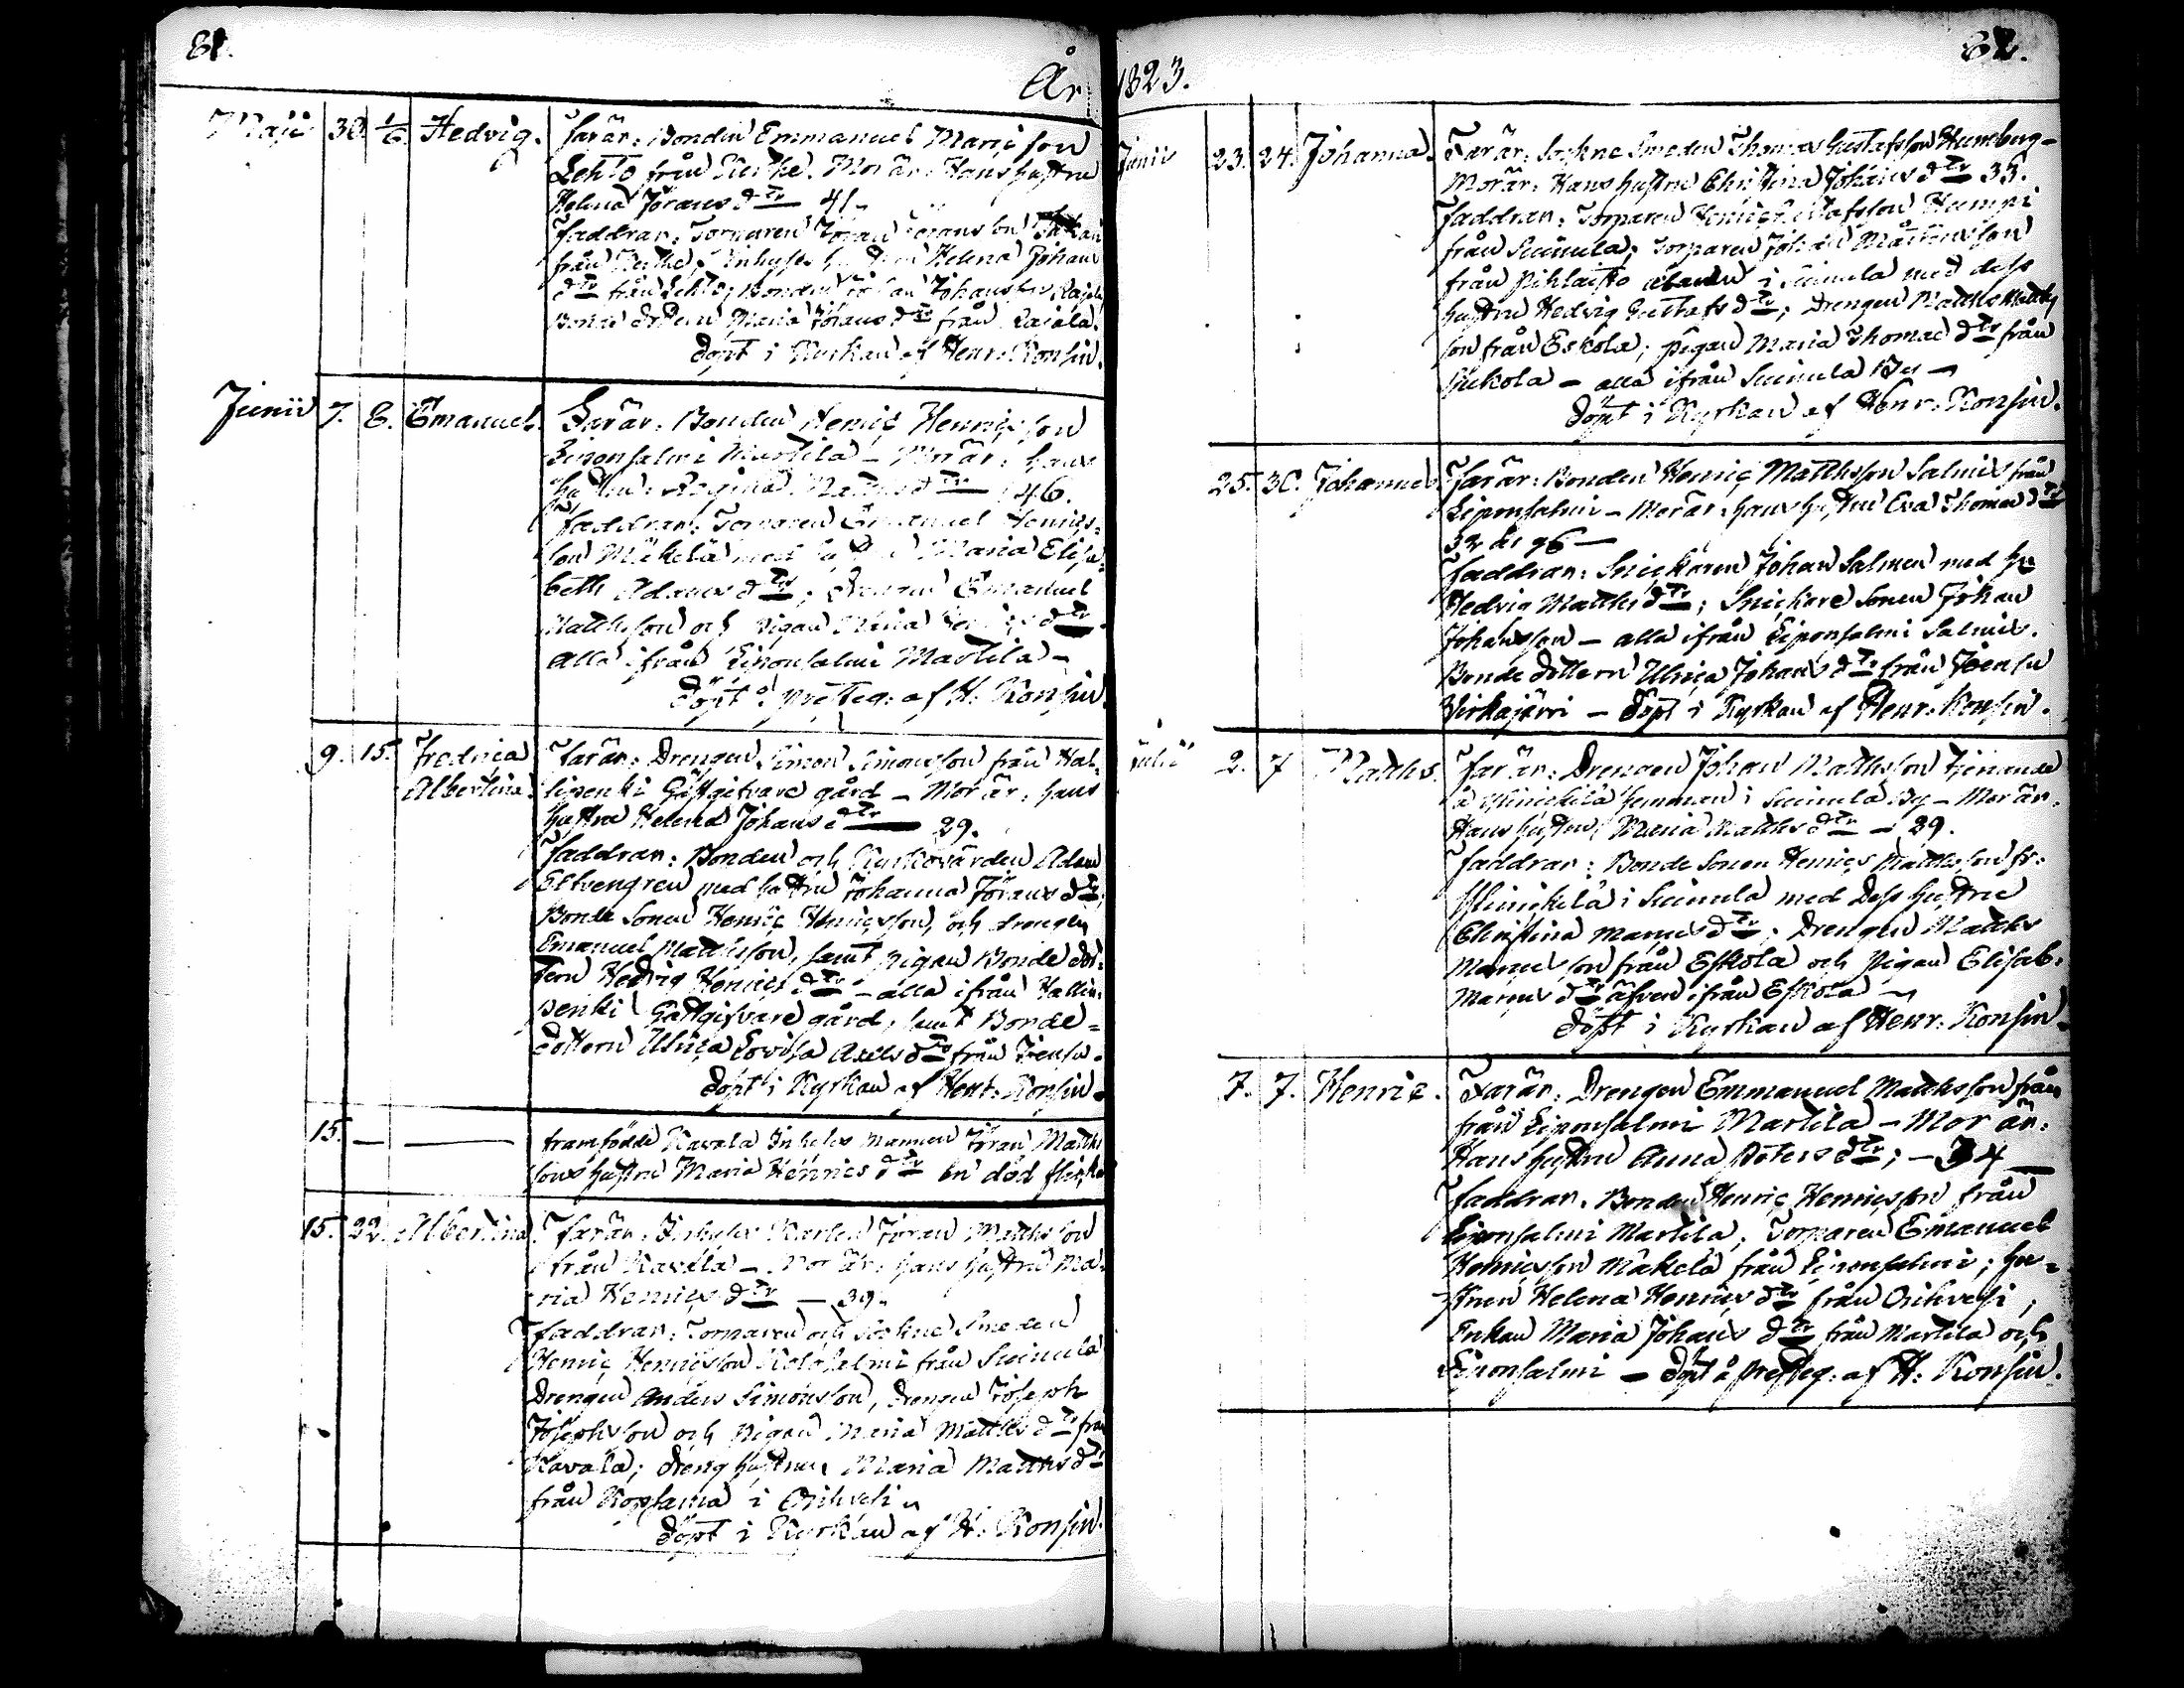 81.
År
Maji 30. 1/6 Hedvig. Far är: Bonden Emmanuel Mariæson
Lehto från . Mor är: Hans hustru
Helena Jörans dtr 41.
Faddrar: Torparen Jöran Göransson
från ; Inhyses Helena Johans
dtr från Lehto; Bonden Johan Johansson
Bonde Dottern Maria Jörans dtr från Kajala.
döpt i Kyrkan af Henr: Konsin.
Junii 7. 8. Emanuel. Far är: Bonden Henric Henricsson
Eiponsalmi Martila – Mor är: hans
hustru: Regina Matts dtr 46.
Faddrar: Torparen Emanuel Henrics-
son Mäkelä med hustru Maria Elisa-
beth Adams dtr; Drengen Emanuel
Mattsson och Pigan Maria dtr.
alla ifrån Eiponsalmi Martila –
döpt å Presteg: af H: Konsin.
9. 15. Fredrica Far är: Drengen Simon Simonsson från Hal-
Albertina. lipenki Gästgifvare gård – Mor är: hans
hustru Helena Johans dtr 29.
Faddrar: Bonden och Kyrkovärden Adam
Elfvengren med hustru Johanna Jörans dtr,
Bonde Sonen Henric Henricsson, och Drengen
Emanuel Mattsson, samt Pigan Bonde dot-
tern Hedvig Henrics dtr – alla ifrån Halli-
penki Gästgifvare gård, samt Bonde-
dottern Ulrica Lovisa Axels dtr från Joensu.
döpt i Kyrkan af Henr: Konsin.
15. — — framfödde Kavala Inhyses mannen Jöran Matts
sons hustru Maria Henrics dtr en död flicka
15. 22. Albertina. Far är: Inhyses Karlen Jöran Mattsson
från Kavala – Mor är: hans hustru Ma-
ria Henrics dtr — 39.
Faddrar: Torparen och Sockne Smeden
Henric Henricsson Kolosalmi från Suinula
Drengen Anders Simonsson, Drengen Joseph
Josephsson och Pigan Maria Matts dtr från
Kavala; Dreng hustrun Maria Matts dtr
från Kopsama i Orihvesi
döpt i Kyrkan af H: Konsin.
82.
1823.
Junii 23. 24. Johanna. Far är: Sockne Smeden Thomas Gustafsson Humberg –
Mor är: Hans hustru Christina Johans dtr 33.
Faddrar: Torparen Henric Humpi
från Suinula; Torparen Johan Mårtensson
från Pihlaisto i Suinula med dess
hustru Hedvig Gustafs dtr; Drengen Matts Matts
son från Eskola; Pigan Maria Thomæ dtr från
Jukola – alla ifrån Suinula By –
döpt i Kyrkan af Henr: Konsin.
25. 30. Johannes. Far är: Bonden Henric Mattsson Salmis från
Eiponsalmi – Mor är: hans hustru Eva Thomæ dtr
32 år
Faddrar: Snickaren Johan Salmen med hu
Hedvig Matts dtr; Snickare Sonen Johan
Johansson – alla ifrån Eiponsalmi Salmis.
Bonde dottern Ulrica Johans dtr från Joensu
Virkajärvi – döpt i Kyrkan af Henr: Konsin.
Julii 2. 7 Matths. Far är: Drengen Johan Mattsson tjenande
å hemman i Suinula By – Mor är:
Hans hustru, Maria Matts dtr – 39.
Faddrar: Bonde Sonen Henric Mattsson fr:
i Suinula med Dess hustru
Christina dtr; Drengen Matths
son från Eskola och Pigan Elisab:
dtr äfven ifrån Eskola –
döpt i Kyrkan af Henr: Konsin.
7. 7. Henric. Far är: Drengen Emmanuel Mattsson från
från Eiponsalmi Martila – Mor är:
Hans hustru Anna Peters dtr; – 34 –
Faddrar. Bonden Henric Henricsson från
Eiponsalmi Martila, Torparen Emanuel
Henricsson Mäkelä från Eiponsalmi; hu-
strun Helena Henrics dtr från Orihvesi;
Enkan Maria Johans dtr från Martila och
Eiponsalmi – döpt å Presteg: af H: Konsin.